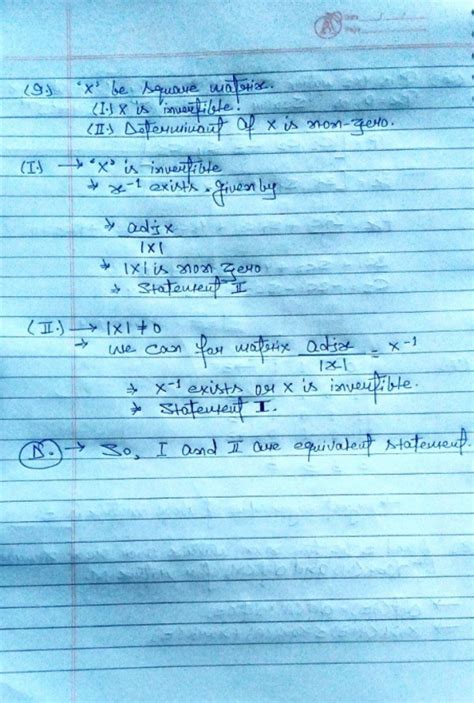 (9.) 'x' be square matrix.
(I.) X is invertible.
(II.) Determinant of x is non-zero.
(I.) → 'x' is invertible
⇒ x⁻¹ exists. Given by
⇒ adj x
|x|
⇒ |x| is non zero
⇒ Statement II
(II.) → |x| ≠ 0
⇒ We can for matrix adjx/|x| = x⁻¹
⇒ x⁻¹ exists or x is invertible.
⇒ Statement I.
D. → So, I and II are equivalent statement.